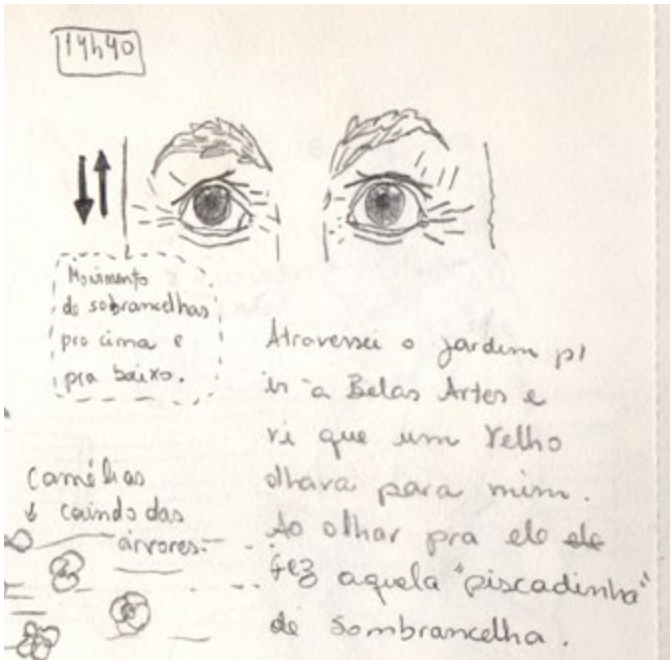 14h40
Movimento
de sobrancelhas
pra cima e
pra baixo.
Atravessei o jardim p/
ir à Belas Artes e
vi que um velho
olhava para mim.
Ao olhar pra ele ele
fez aquela "piscadinha"
de sombrancelha.
Camélias
caindo das
árvores.